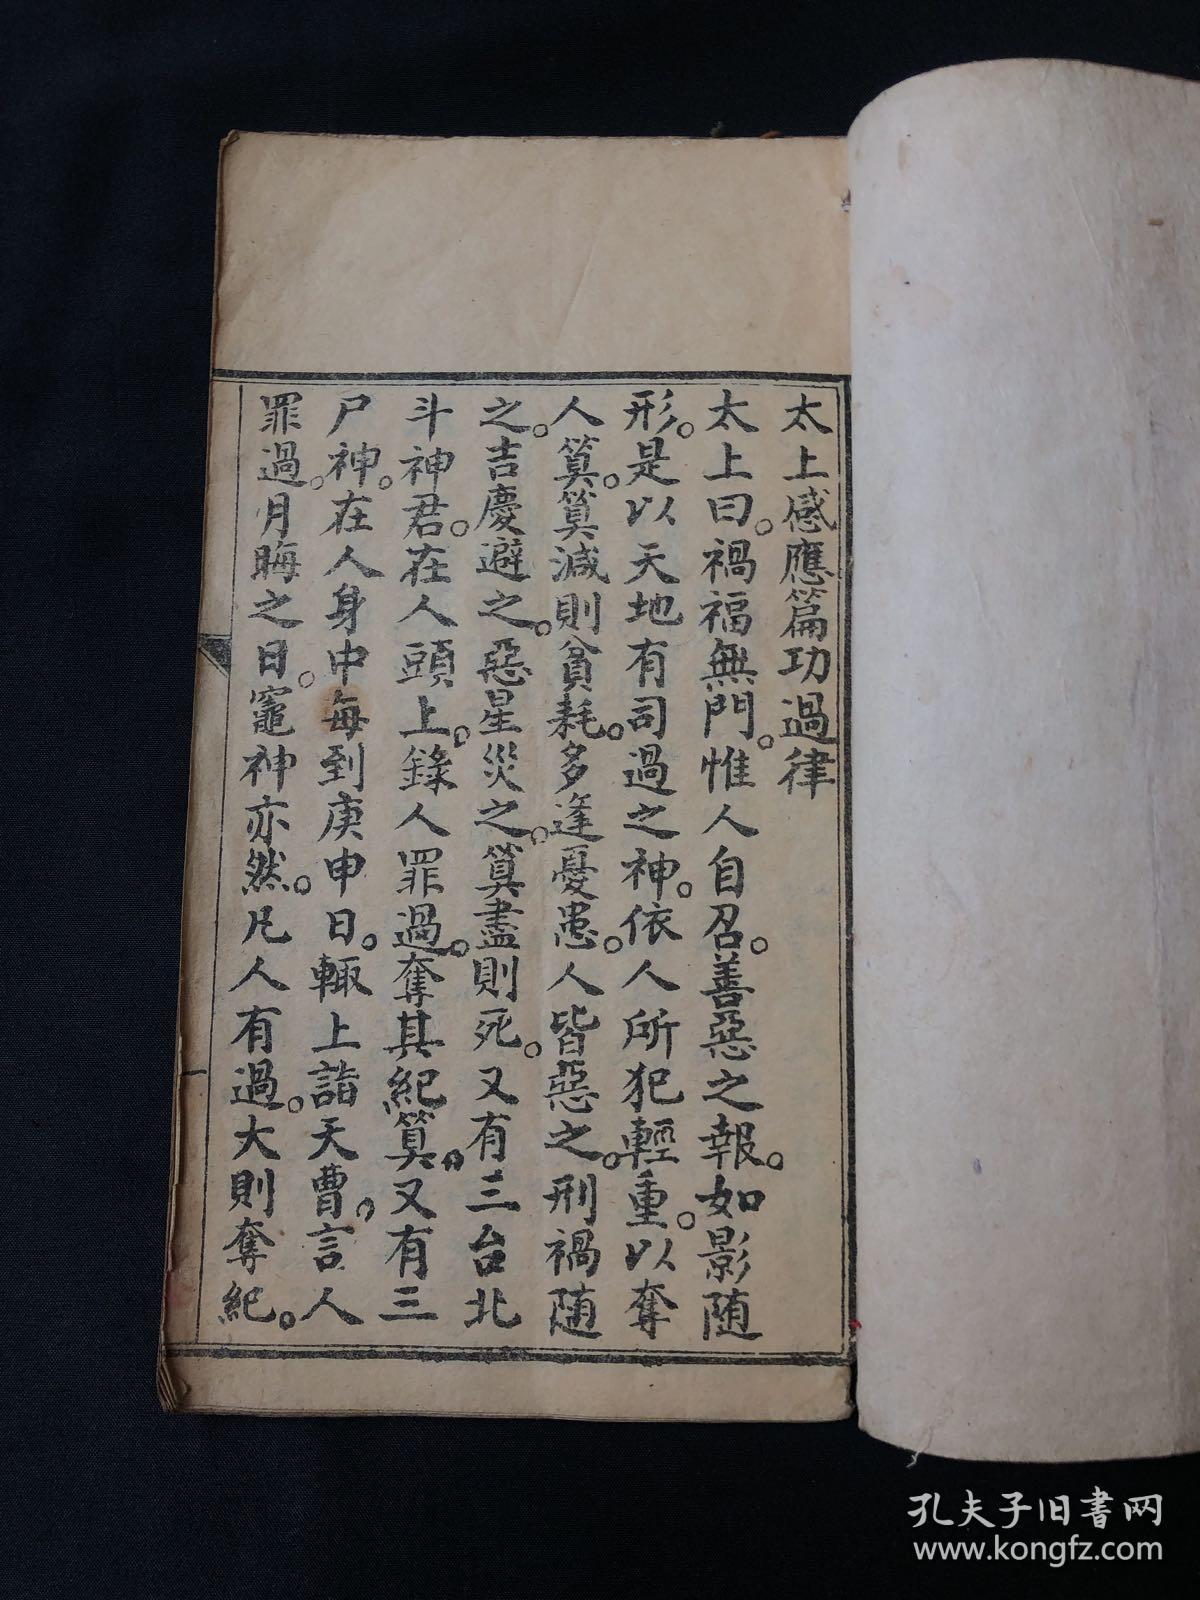 太上感應篇功過律
太上曰。禍福無門。惟人自召。善惡之報。如影随
形。是以天地有司過之神。依人所犯輕重。以奪
人算。算減則貧耗。多逢憂患。人皆惡之。刑禍随
之。吉慶避之。惡星災之。算盡則死。又有三台北
斗神君。在人頭上。錄人罪過。奪其紀算。又有三
尸神。在人身中每到庚申日。輙上詣天曹。言人
罪過。月晦之日。竈神亦然。凡人有過。大則奪紀。
孔夫子旧书网
www.kongfz.com